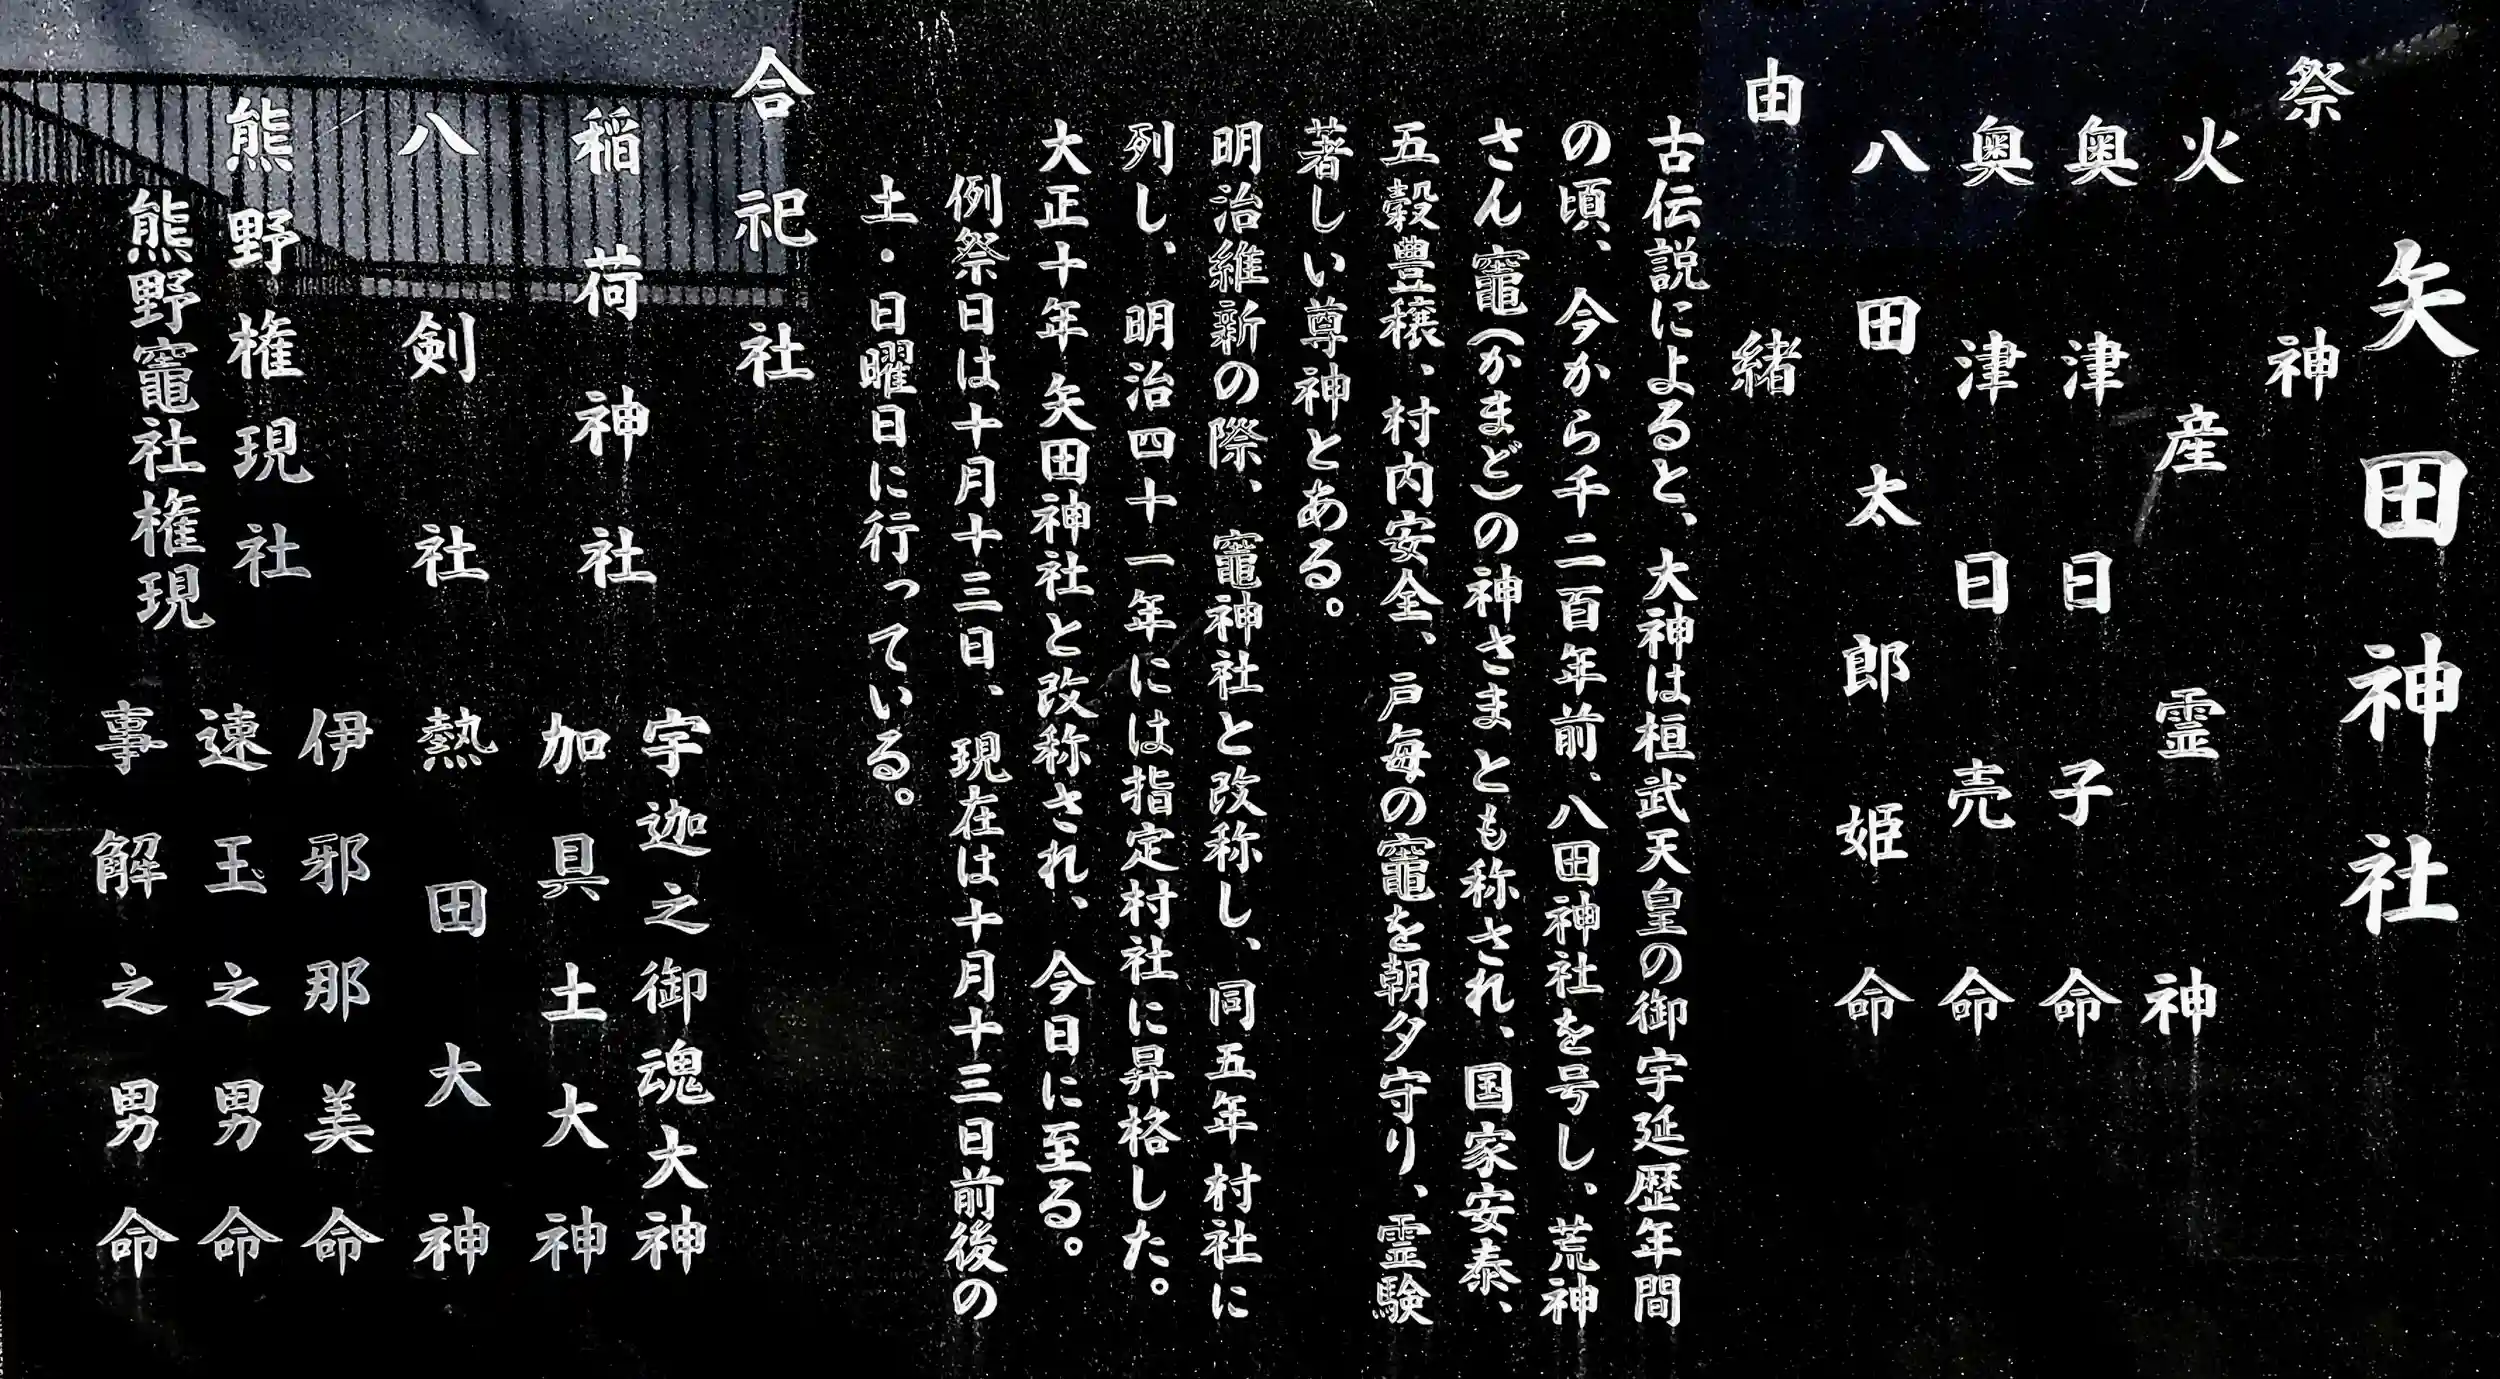 矢田神社
祭神
火産霊神
奥津日子命
奥津日売命
八田太郎姫命
由緒
古伝説によると、大神は桓武天皇の御宇延歴年間
の頃、今から千二百年前、八田神社を号し、荒神
さん竈(かまど)の神さまとも称され、国家安泰、
五穀豊穣、村内安全、戸毎の竈を朝夕守り、霊験
著しい尊神とある。
明治維新の際、竈神社と改称し、同五年村社に
列し、明治四十一年には指定村社に昇格した。
大正十年矢田神社と改称され、今日に至る。
例祭日は十月十三日、現在は十月十三日前後の
土・日曜日に行っている。
合祀社
稲荷神社 宇迦之御魂大神
加具土大神
八剣社 熱田大神
熊野権現社 伊邪那美命
速玉之男命
熊野竈社権現 事解之男命